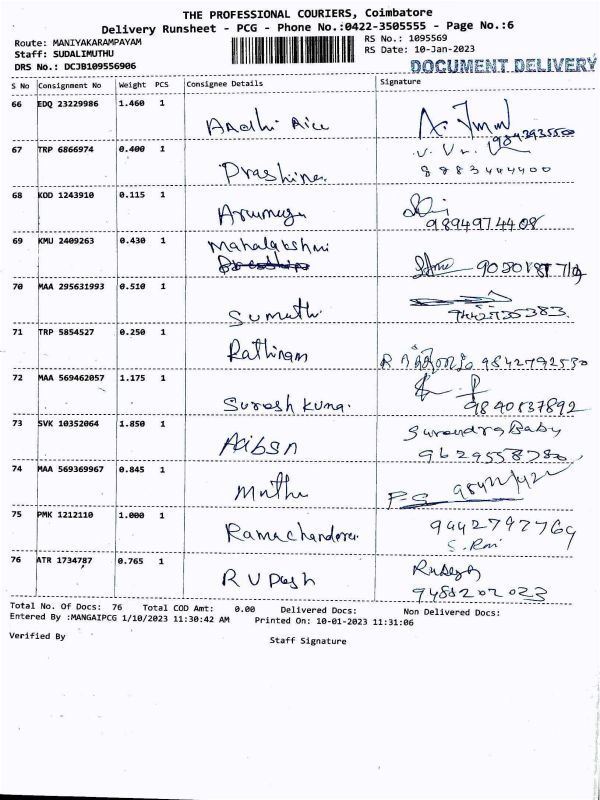 THE PROFESSIONAL COURIERS, Coimbatore
Delivery Runsheet - PCG - Phone No.:0422-3505555 - Page No.:6
Route: MANIYAKARAMPAYAM
RS No.: 1095569
Staff: SUDALIMUTHU
RS Date: 10-Jan-2023
DRS No.: DCJB109556906
DOCUMENT DELIVERY
S No Consignment No Weight PCS Consignee Details Signature
66 EDQ 23229986 1.460 1
Aadhi Rice
67 TRP 6866974 0.400 1
8883444400
68 KOD 1243910 0.115 1
Arumugu
9894974408
69 KMU 2409263 0.430 1 Mahalakshmi
70 MAA 295631993 0.510 1
Sumathi
9442735383
71 TRP 5854527 0.250 1
Rathinam 9842792530
72 MAA 569462057 1.175 1
Suresh Kuma.
9840837892
73 SVK 10352064 1.850 1
Surendra Baby
Aibsn
74 MAA 569369967 0.845 1
Muthu P.S
75 PMK 1212110 1.000 1
9442797769
76 ATR 1734787 0.765 1
Total No. Of Docs: 76 Total COD Amt: 0.00 Delivered Docs: Non Delivered Docs:
Entered By :MANGAIPCG 1/10/2023 11:30:42 AM Printed On: 10-01-2023 11:31:06
Verified By
Staff Signature